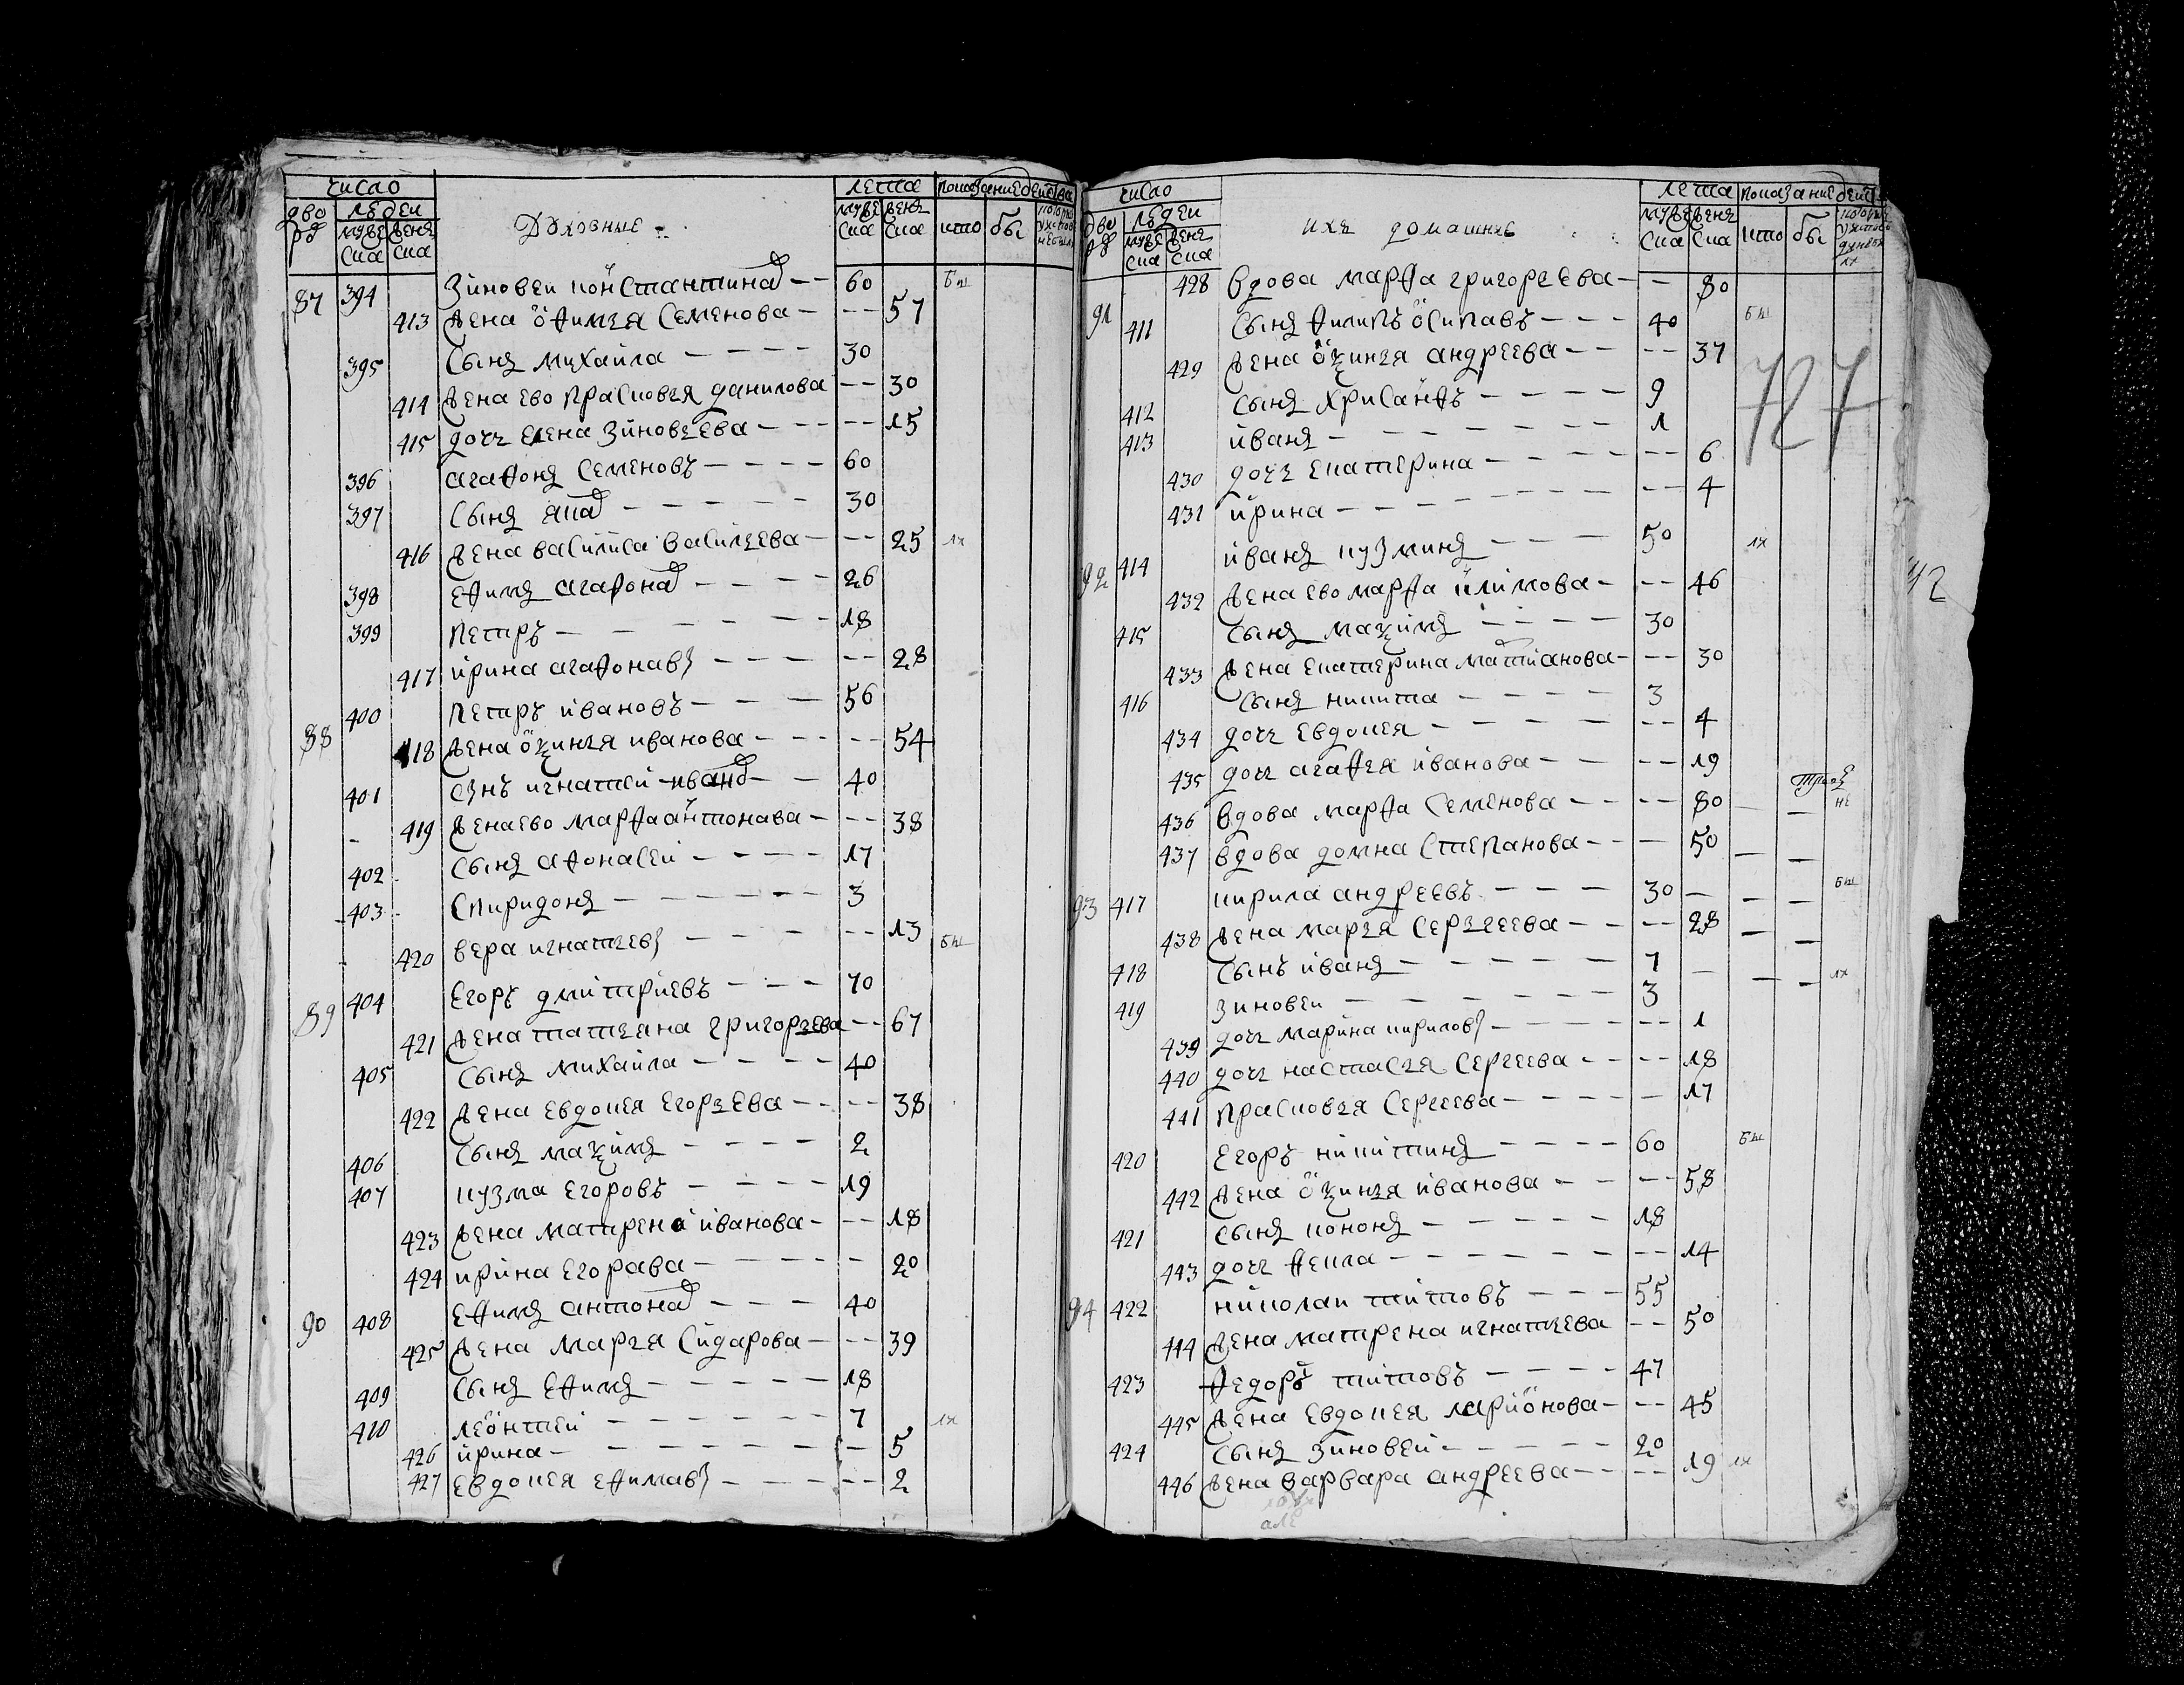 число
лета
показание действа
дво ров
людеи
муже ска
женъ ска
Духовные
муже ска
женъ ска
кто
бы
87 394 Зиновеи конъстантинов 60 бы
413 жена офимья Семенова 57
395 Сынъ михаила 30
414 жена ево прасковья данилова 30
415 дочь елена зиновьева 15
396 агафонъ Семеновъ 60
397 Сынъ яков 30
416 жена василиса васильева 25
398 ефимъ агафонов 26
399 петръ 18
417 ирина агафонав 28
88 400 петръ ивановъ 56
418 жена оксинья иванова 54
401 Сынъ игнатеи иванов 40
419 жена ево марфа антонава 38
402 Сынъ афонасеи 17
403 Спиридонъ 3
420 вера игнатьев 13
89 404 Егоръ дмитриевъ 70
421 жена татьяна григорьева 67
405 Сынъ михаила 40
422 жена евдокея егорьева 38
406 Сынъ максимъ 2
407 кузма егоровъ 19
423 жена матрена иванова 18
424 ирина егорава 20
90 408 ефимъ антонов 40
425 жена марья Сидарова 39
409 Сынъ ефимъ 18
410 леонтеи 7
426 ирина 5
427 евдокея ефимав 2
число
лета
показание
дво ров
людеи
муже ска
женъ ска
ихъ домашние
муже ска
женъ ска
кто
бы
428 вдова марфа григорьева 80
91 411 Сынъ филипъ осипавъ 40
429 жена оксинья андреева 37
727
412 Сынъ хрисанфъ 9
413 иванъ 1
430 дочь екатерина 6
431 ирина 4
92 414 иванъ кузминъ 50
42
432 жена ево марфа климова 46
415 Сынъ максимъ 30
433 жена екатерина матианова 30
416 Сынъ никита 3
434 дочь евдокея 4
435 дочь агафья иванова 19
436 вдова марфа Семенова 80
437 вдова домна Степанова 50
93 417 кирила андреевъ 30
438 жена марья Сергеева 28
418 Сынъ иванъ 7
419 зиновеи 3
439 дочь марина кирилов 1
440 дочь настасья Сергеева 18
441 прасковья Сергеева 17
420 Егоръ никитинъ 60
442 жена оксинья иванова 58
421 Сынъ кононъ 18
443 дочь фекла 14
94 422 николаи титовъ 55
444 жена матрена игнатьева 50
423 федоръ титовъ 47
445 жена евдокея ларионова 45
424 Сынъ зиновеи 20
446 жена варвара андреева 19